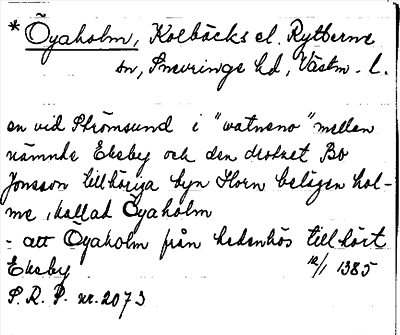 * Öyaholm, Kolbäcks el. Rytterne
sn, Snevringe hd, Västm. l.
en vid Strömsund i "watneno" mellan
nämnde Ekeby och den drotzet Bo
Jonsson tillhöriga byn Horn belägen hol-
me, kallad Öyaholm
- att Öyaholm från hedenhös tillhört
Ekeby 12/1 1385
S. R. P. nr. 2073